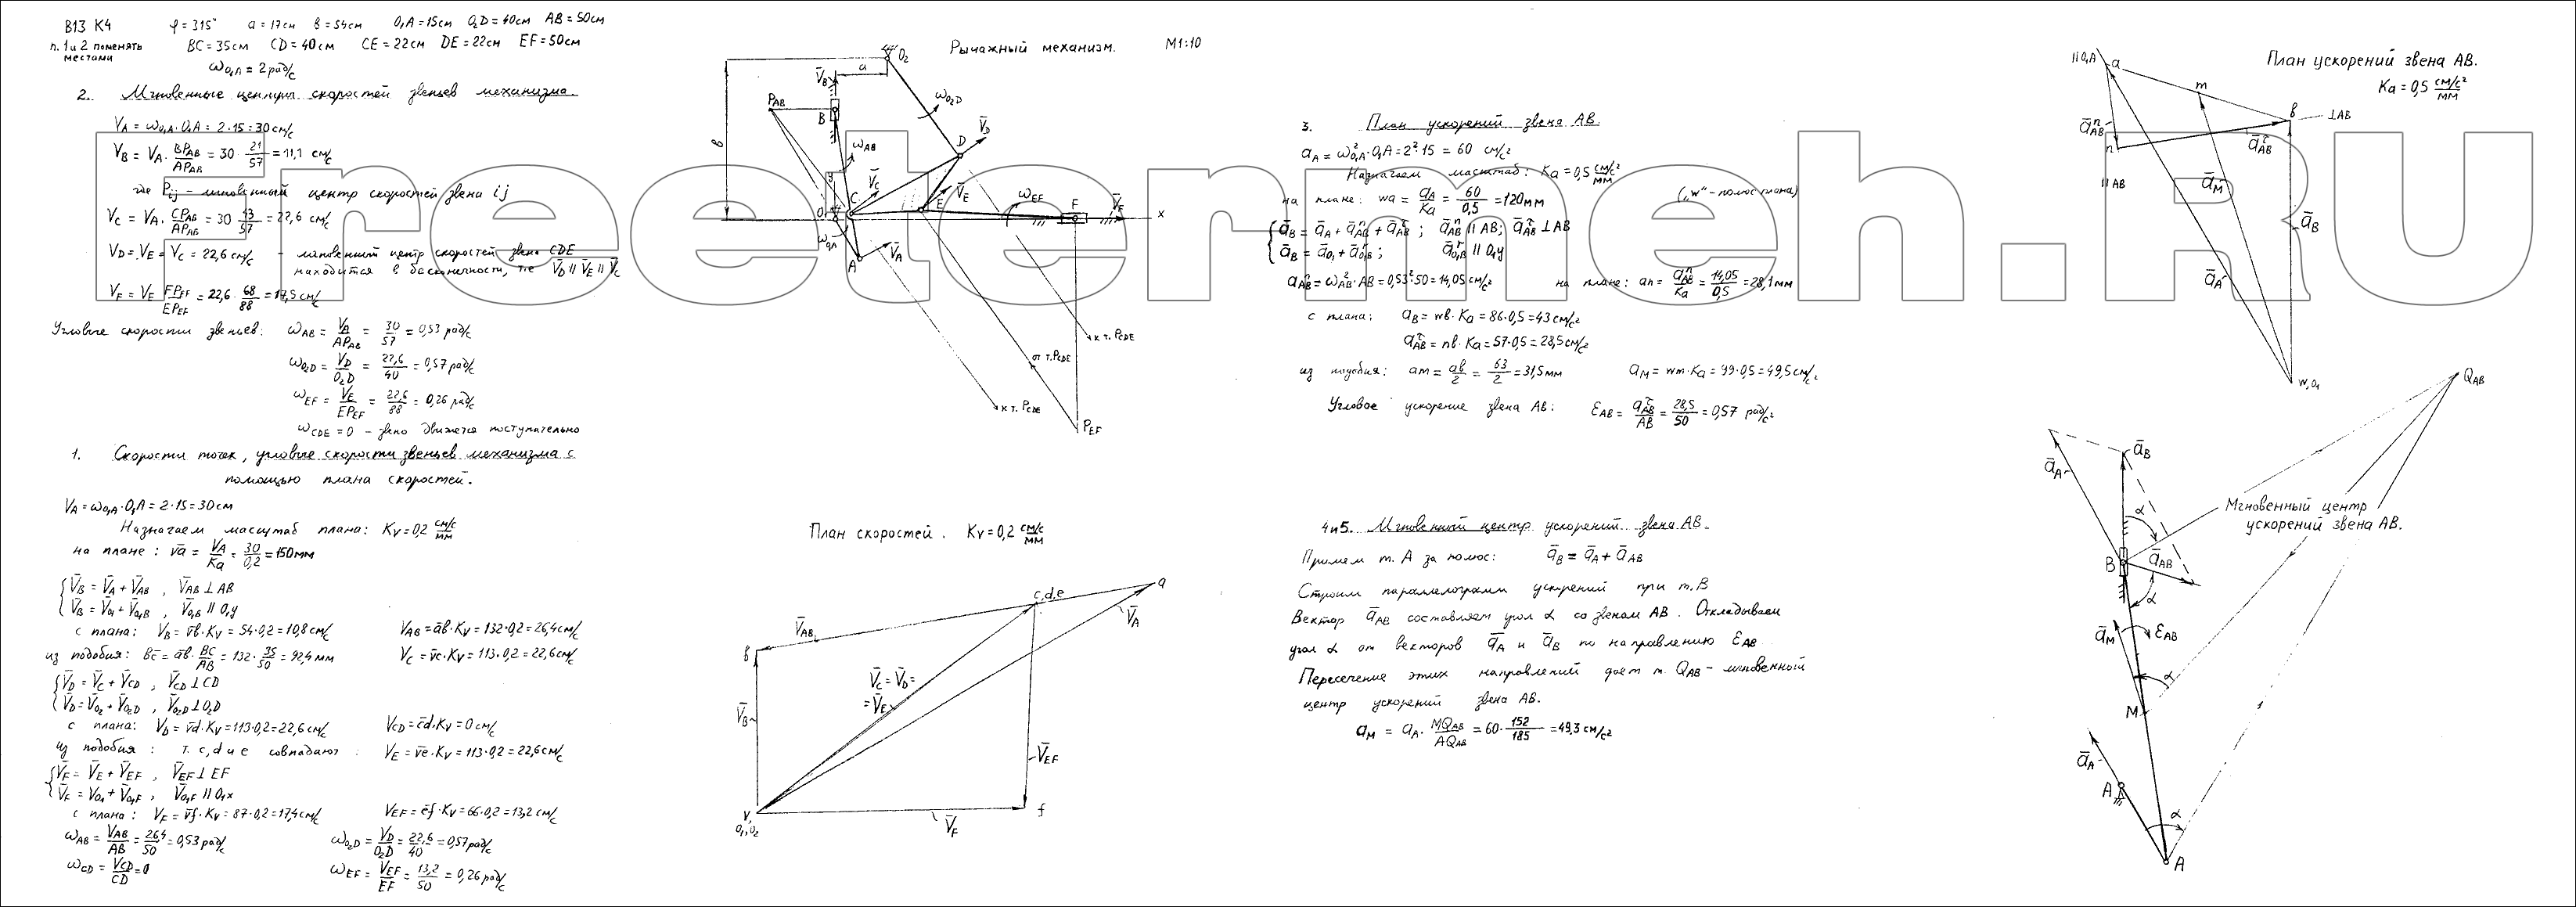 В13 К4 φ=315° a=17см в=54см O₁A=15см O₂D=40см AB=50см
п. 1 и 2 поменять местами BC=35см CD=40см CE=22см DE=22см EF=50см
ω_O₁A = 2 рад/с
2. Мгновенные центры скоростей звеньев механизма.
V_A = ω_O₁A·O₁A = 2·15 = 30 см/с
V_B = V_A · BP_AB/AP_AB = 30 · 21/57 = 11,1 см/с
где P_ij – мгновенный центр скоростей звена ij
V_C = V_A · CP_AB/AP_AB = 30 · 43/57 = 22,6 см/с
V_D = V_E = V_C = 22,6 см/с – мгновенный центр скоростей звена CDE
находится в бесконечности, т.е V̄_D ∥ V̄_E ∥ V̄_C
V_F = V_E · FP_EF/EP_EF = 22,6 · 68/88 = 17,5 см/с
Угловые скорости звеньев: ω_AB = V_A/AP_AB = 30/57 = 0,53 рад/с
ω_O₂D = V_D/O₂D = 22,6/40 = 0,57 рад/с
ω_EF = V_E/EP_EF = 22,6/88 = 0,26 рад/с
ω_CDE = 0 – звено движется поступательно
1. Скорости точек, угловые скорости звеньев механизма с
помощью плана скоростей.
V_A = ω_O₁A·O₁A = 2·15 = 30 см
Назначаем масштаб плана: K_V = 0,2 см/с/мм
на плане: v̄a = V_A/K_a = 30/0,2 = 150 мм
V̄_B = V̄_A + V̄_AB , V̄_AB ⊥ AB
V̄_B = V̄_O₁ + V̄_O₁B , V̄_O₁B ∥ O₁y
с плана: V_B = v̄в·K_V = 54·0,2 = 10,8 см/с V_AB = āв·K_V = 132·0,2 = 26,4 см/с
из подобия: в̄c = āв · BC/AB = 132 · 35/50 = 92,4 мм V_C = v̄c·K_V = 113·0,2 = 22,6 см/с
V̄_D = V̄_C + V̄_CD , V̄_CD ⊥ CD
V̄_D = V̄_O₂ + V̄_O₂D , V̄_O₂D ⊥ O₂D
с плана: V_D = v̄d·K_V = 113·0,2 = 22,6 см/с V_CD = c̄d·K_V = 0 см/с
из подобия: т. c, d и e совпадают: V_E = v̄e·K_V = 113·0,2 = 22,6 см/с
V̄_F = V̄_E + V̄_EF , V̄_EF ⊥ EF
V̄_F = V̄_O₁ + V̄_O₁F , V̄_O₁F ∥ O₁x
с плана: V_F = v̄f·K_V = 87·0,2 = 17,4 см/с V_EF = ēf·K_V = 66·0,2 = 13,2 см/с
ω_AB = V_AB/AB = 26,4/50 = 0,53 рад/с ω_O₂D = V_D/O₂D = 22,6/40 = 0,57 рад/с
ω_CD = V_CD/CD = 0 ω_EF = V_EF/EF = 13,2/50 = 0,26 рад/с
Рычажный механизм. М1:10
O₂
a
V̄_B
P_AB
B
ω_O₂D
D
V̄_D
в
ω_AB
y
V̄_C
C
V̄_E
E
ω_EF
F
V̄_F
x
O₁
ω_O₁A
A
V̄_A
к т. P_CDE
от т. P_CDE
к т. P_CDE
P_EF
План скоростей. K_V = 0,2 см/с/мм
a
c,d,e
V̄_AB
V̄_A
в
V̄_C = V̄_D =
= V̄_E
V̄_B
V̄_EF
v,
O₁,O₂
V̄_F
f
3. План ускорений звена AB.
a_A = ω²_O₁A·O₁A = 2²·15 = 60 см/с²
Назначаем масштаб: K_a = 0,5 см/с²/мм
на плане: wa = a_A/K_a = 60/0,5 = 120 мм („w“ – полюс плана)
ā_B = ā_A + ā^n_AB + ā^τ_AB ; ā^n_AB ∥ AB; ā^τ_AB ⊥ AB
ā_B = ā_O₁ + ā^τ_O₁B ; ā^τ_O₁B ∥ O₁y
a^n_AB = ω²_AB·AB = 0,53²·50 = 14,05 см/с² на плане: an = a^n_AB/K_a = 14,05/0,5 = 28,1 мм
с плана: a_B = wв·K_a = 86·0,5 = 43 см/с²
a^τ_AB = nв·K_a = 57·0,5 = 28,5 см/с²
из подобия: am = aв/2 = 63/2 = 31,5 мм a_M = wm·K_a = 99·0,5 = 49,5 см/с²
Угловое ускорение звена AB: ε_AB = a^τ_AB/AB = 28,5/50 = 0,57 рад/с²
4 и 5. Мгновенный центр ускорений звена AB.
Примем т. A за полюс: ā_B = ā_A + ā_AB
Строим параллелограмм ускорений при т. B
Вектор ā_AB составляет угол α со звеном AB. Откладываем
угол α от векторов ā_A и ā_B по направлению ε_AB
Пересечение этих направлений дает т. Q_AB – мгновенный
центр ускорений звена AB.
a_M = a_A · MQ_AB/AQ_AB = 60 · 152/185 = 49,3 см/с²
План ускорений звена AB.
K_a = 0,5 см/с²/мм
∥O₁A
a
m
в
⊥AB
ā^n_AB
n
ā^τ_AB
∥AB
ā_M
ā_B
ā_A
w,O₁
Q_AB
ā_A
ā_B
Мгновенный центр
ускорений звена AB.
α
B
ā_AB
α
ā_M
ε_AB
α
M
ā_A
A
α
A
FreeTermeh.Ru